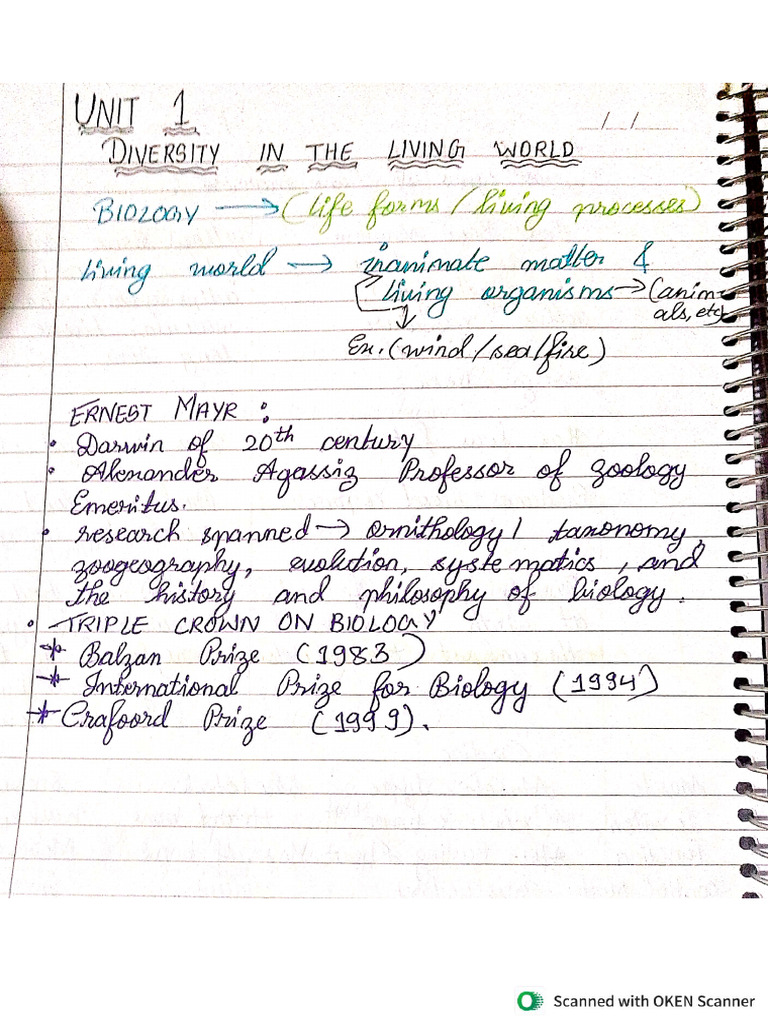 UNIT 1
/ /
DIVERSITY IN THE LIVING WORLD
BIOLOGY → (life forms / living processes)
living world → inanimate matter &
living organisms → (anim-
als, etc)
↓
Ex. (wind / sea / fire)
ERNEST MAYR :
• Darwin of 20th century
• Alexander Agassiz Professor of zoology
Emeritus.
• research spanned → ornithology / taxonomy,
zoogeography, evolution, systematics, and
the history and philosophy of biology.
• TRIPLE CROWN ON BIOLOGY
* Balzan Prize (1983)
* International Prize for Biology (1994)
* Crafoord Prize (1999).
Scanned with OKEN Scanner